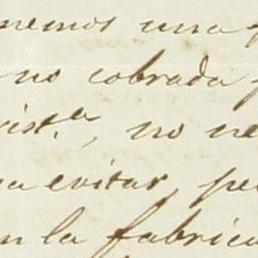 nemos una
no cobrada
vist.ª, no ne
a evitar, pe
n la fabrica